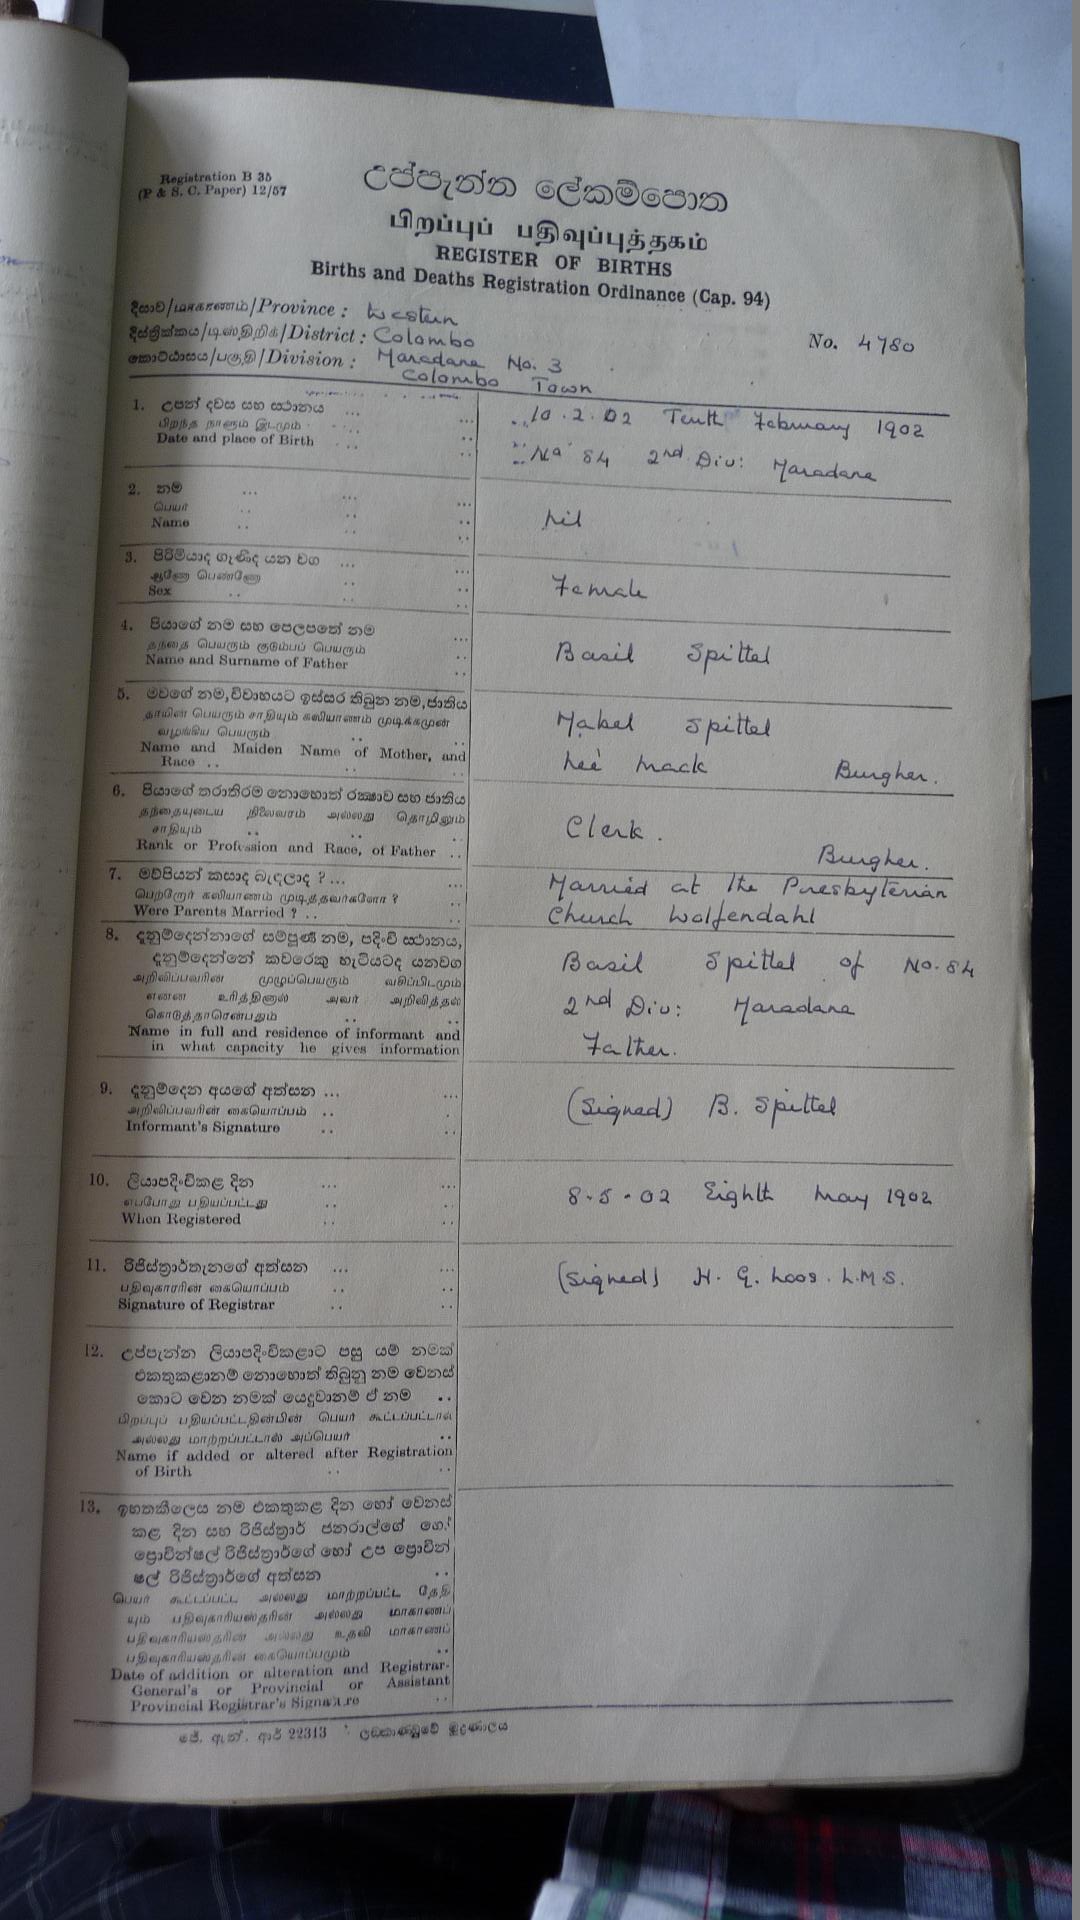 Registration B 35
(P & S. C. Paper) 12/57
උප්පැන්න ලේකම්පොත
பிறப்புப் பதிவுப்புத்தகம்
REGISTER OF BIRTHS
Births and Deaths Registration Ordinance (Cap. 94)
දිසාව/மாகாணம்/Province : Western
දිස්ත්‍රික්කය/டிஸ்திறிக்/District : Colombo
No. 4780
කොට්ඨාසය/பகுதி/Division : Maradana No. 3
Colombo Town
1. උපන් දවස සහ ස්ථානය ...
பிறந்த நாளும் இடமும்
Date and place of Birth
10.2.02 Tenth February 1902
No 84 2nd Div: Maradana
2. නම ...
பெயர்
Name
Nil
3. පිරිමියාද ගැණිද යන වග ...
ஆணோ பெண்ணோ
Sex
Female
4. පියාගේ නම සහ පෙලපතේ නම
தந்தை பெயரும் குடும்பப் பெயரும்
Name and Surname of Father
Basil Spittel
5. මවගේ නම, විවාහයට ඉස්සර තිබුන නම, ජාතිය
தாயின் பெயரும் சாதியும் கலியாணம் முடிக்கமுன்
வழங்கிய பெயரும்
Name and Maiden Name of Mother, and
Race ..
Mabel Spittel
neé Mack Burgher.
6. පියාගේ තරාතිරම නොහොත් රක්ෂාව සහ ජාතිය
தந்தையுடைய நிலைவரம் அல்லது தொழிலும்
சாதியும்
Rank or Profession and Race, of Father ..
Clerk.
Burgher.
7. මව්පියන් කසාද බැඳලාද ? ...
பெற்றோர் கலியாணம் முடித்தவர்களோ ?
Were Parents Married ? ..
Married at the Presbyterian
Church Wolfendahl
8. දැනුම්දෙන්නාගේ සම්පූර්ණ නම, පදිංචි ස්ථානය,
දැනුම්දෙන්නේ කවරෙකු හැටියටද යනවග
அறிவிப்பவரின் முழுப்பெயரும் வசிப்பிடமும்
என்ன உரித்தினால் அவர் அறிவித்தல்
கொடுத்தாரென்பதும்
Name in full and residence of informant and
in what capacity he gives information
Basil Spittel of No. 84
2nd Div: Maradana
Father.
9. දැනුම්දෙන අයගේ අත්සන ...
அறிவிப்பவரின் கையொப்பம் ..
Informant's Signature
(Signed) B. Spittel
10. ලියාපදිංචිකළ දින ...
எப்போது பதியப்பட்டது
When Registered
8.5.02 Eighth May 1902
11. රිජිස්ත්‍රාර්තැනගේ අත්සන ...
பதிவுகாரரின் கையொப்பம்
Signature of Registrar
(Signed) H. G. Loos. L.M.S.
12. උප්පැන්න ලියාපදිංචිකළාට පසු යම් නමක්
එකතුකළානම් නොහොත් තිබුනු නම වෙනස්
කොට වෙන නමක් යෙදුවානම් ඒ නම ..
பிறப்புப் பதியப்பட்டதின்பின் பெயர் கூட்டப்பட்டால்
அல்லது மாற்றப்பட்டால் அப்பெயர் ..
Name if added or altered after Registration
of Birth
13. ඉහතකීලෙස නම එකතුකළ දින හෝ වෙනස්
කළ දින සහ රිජිස්ත්‍රාර් ජනරාල්ගේ හෝ
ප්‍රොවින්ෂල් රිජිස්ත්‍රාර්ගේ හෝ උප ප්‍රොවින්
ෂල් රිජිස්ත්‍රාර්ගේ අත්සන
பெயர் கூட்டப்பட்ட அல்லது மாற்றப்பட்ட தேதி
யும் பதிவுகாரியஸ்தரின் அல்லது மாகாணப்
பதிவுகாரியஸ்தரின் அல்லது உதவி மாகாணப்
பதிவுகாரியஸ்தரின் கையொப்பமும்
Date of addition or alteration and Registrar-
General's or Provincial or Assistant
Provincial Registrar's Signature
ජේ. ඇන්. ආර් 22313 ලඞකාණ්ඩුවේ මුද්‍රණාලය